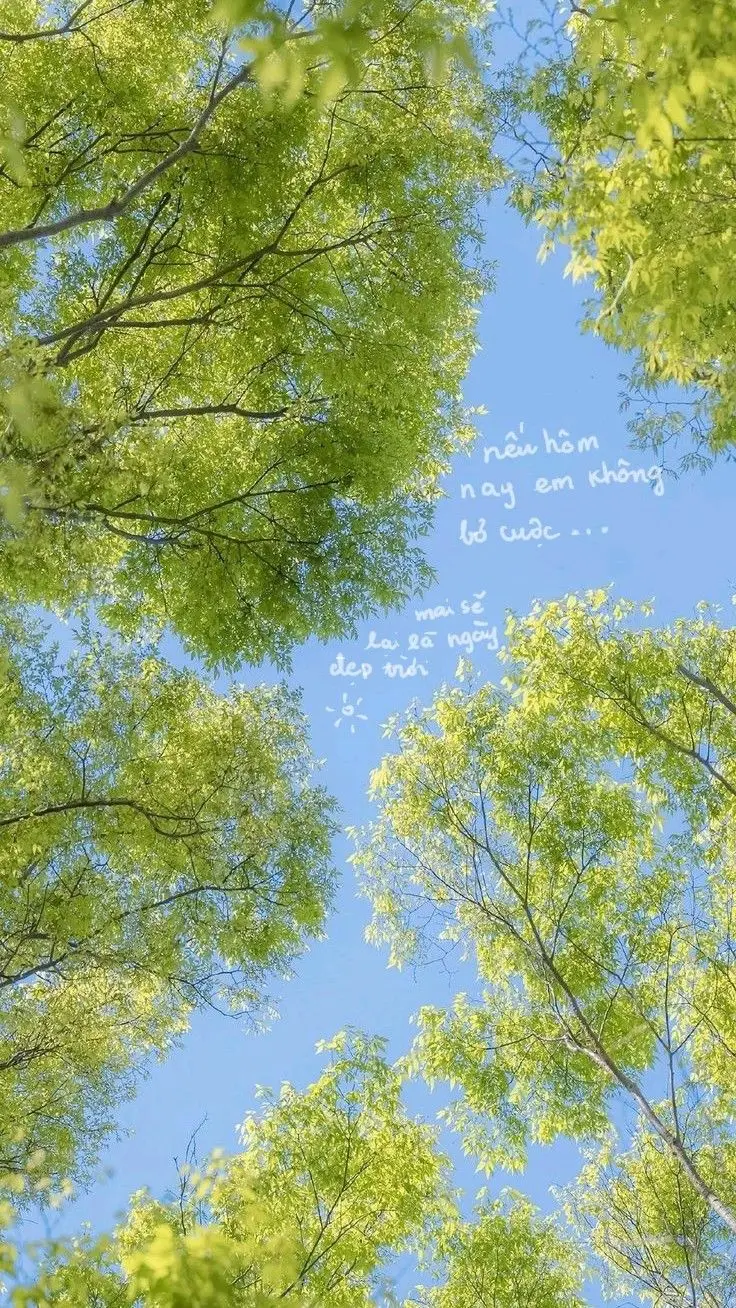 nếu hôm
nay em không
bỏ cuộc ...
mai sẽ
lại là ngày
đẹp trời